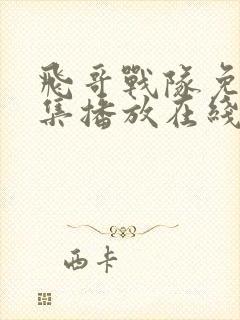 飛哥戰隊免
集播放在綫
西卡